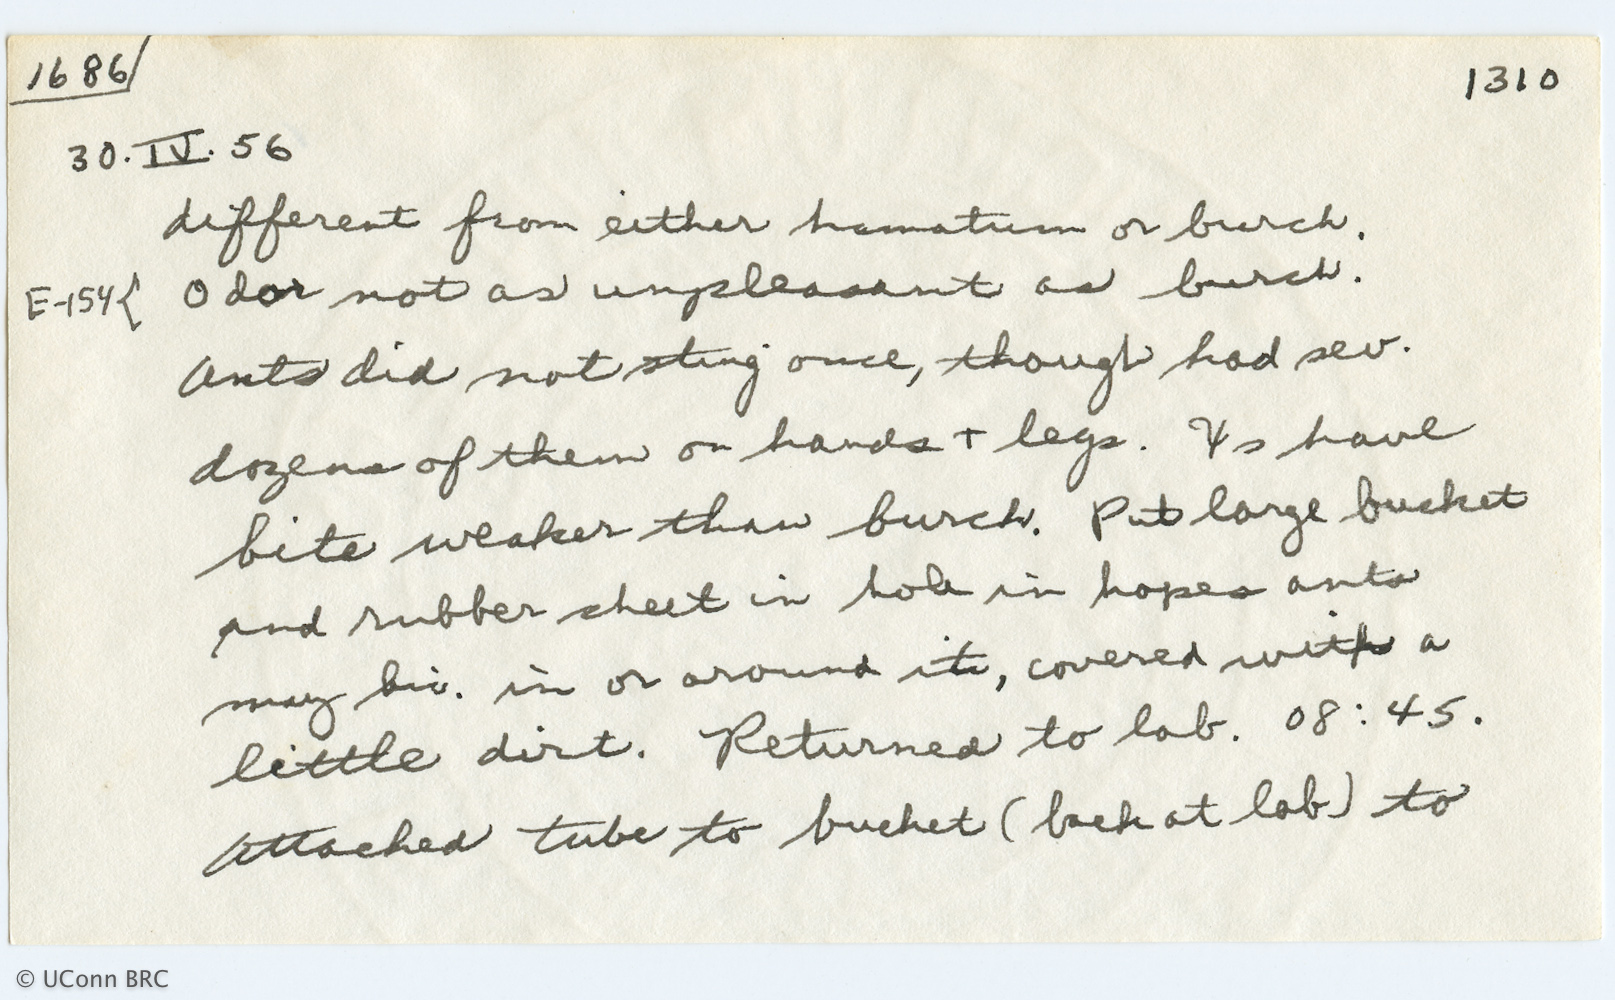 1686
1310
30.IV.56
different from either hamatum or burch.
E-154{ Odor not as unpleasant as burch.
Ants did not sting once, though had sev.
dozens of them on hands + legs. ♃s have
bite weaker than burch. Put large bucket
and rubber sheet in hole in hopes ants
may biv. in or around it, covered with a
little dirt. Returned to lab. 08:45.
Attached tube to bucket (back at lab) to
© UConn BRC